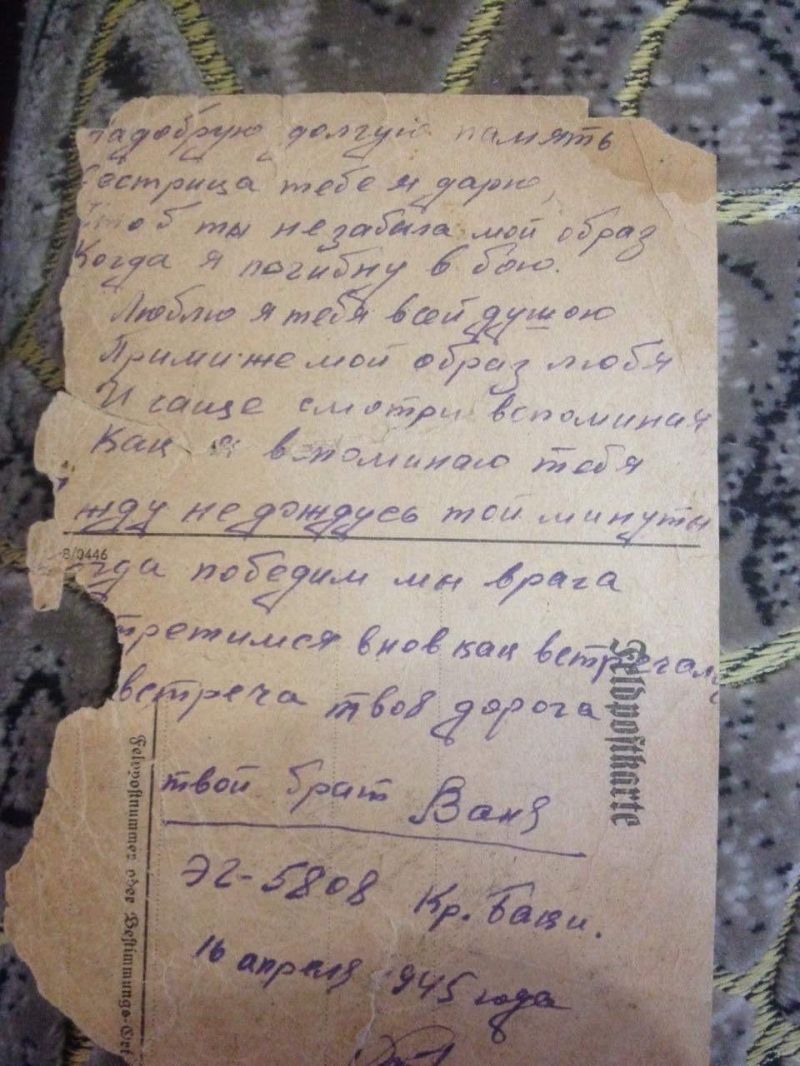 надобрую долгую память
Сестрица тебе я дарю,
Чтоб ты незабыла мой образ
Когда я погибну в бою.
Люблю я тебя всей душою
Прими же мой образ любя
И чаще смотри вспоминая
Как я вспоминаю тебя
жду недождусь той минуты
B/0446
огда победим мы врага
третимся вновь как встречали
встреча твоя дорога
твой брат Ваня
ЭГ-5808 Кр. Баки.
16 апреля 945 года
Feldpostkarte
Feldpostnummer oder Bestimmungs-Ort